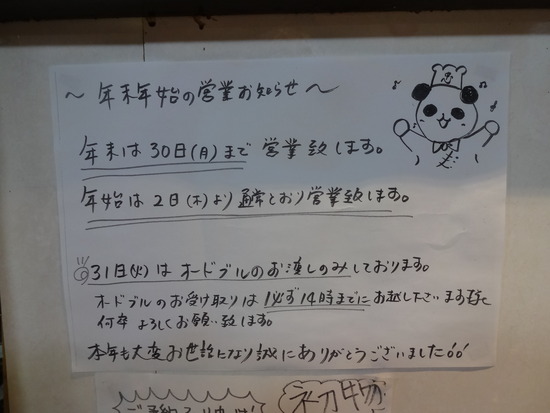 ～ 年末年始の営業お知らせ ～
年末は30日(月)まで 営業致します。
年始は2日(木)より通常とおり営業致します。
◎31日(火)はオードブルのお渡しのみしております。
オードブルのお受け取りは必ず14時までにお越し下さいます様
何卒 よろしくお願い致します。
本年も大変お世話になり誠にありがとうございました!!
初物